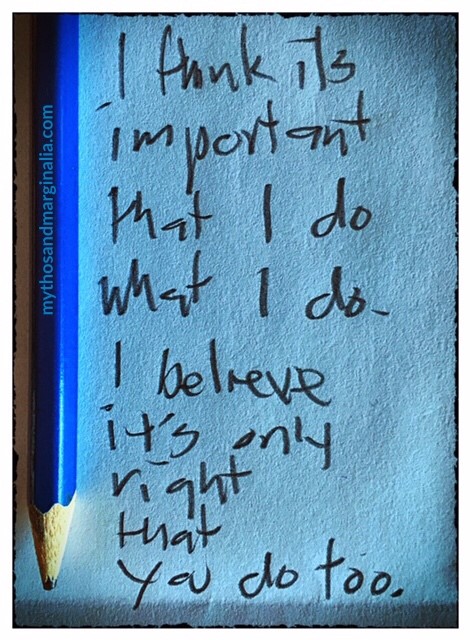 I think it's
important
that I do
what I do.
I believe
it's only
right
that
you do too.
mythosandmarginalia.com